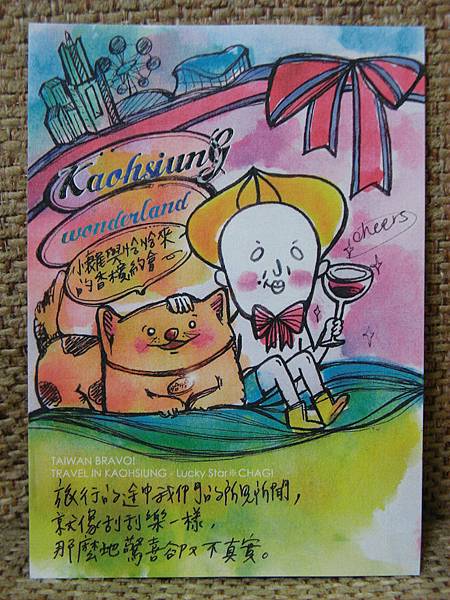 KaohsiunG
wonderland
與恰恰來
的香檳約會
cheers
TAIWAN BRAVO!
TRAVEL IN KAOHSIUNG - Lucky Star※CHAGI
旅行的途中我們的所見所聞，
就像刮刮樂一樣，
那麼地驚喜卻又不真實。